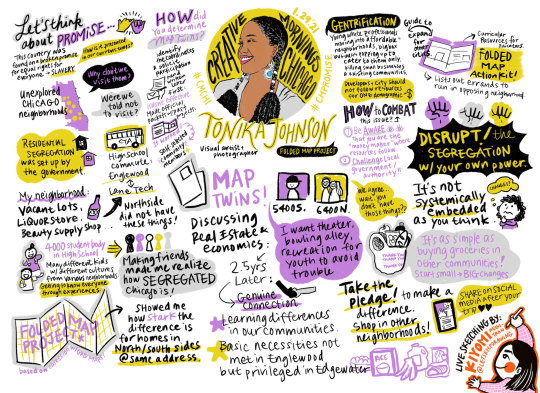 Let's think
about PROMISE...
This country was
found on a broken promise
for equal rights for
everyone - SLAVERY
How is it present
in our current times?
Why don't we
visit them?
Unexplored
CHICAGO
neighborhoods
Were we
told not to
visit?
RESIDENTIAL
SEGREGATION
was set up by
the government
CTA
High School
Commute:
Englewood
Lane Tech
My neighborhood:
Vacant Lots.
Liquor Store.
Beauty supply Shop
Northside
did not have
these things!
4000 student body
in High School
Many different kids
w/ different cultures
from varying neighborhoods
Getting to know everyone
through experiences.
Making friends
made me realize
how SEGREGATED
Chicago is!
FOLDED MAP
PROJECT
based on
Showed me
how stark the
difference is
for homes in
North/south sides
@ same address.
HOW did
you determine
MAP Twins?
identify
the addresses
CREATIVE
MORNINGS
CHICAGO
1.29.21
#CMCHI
#CMPROMISE
TONIKA JOHNSON
Visual artist +
photographer
FOLDED MAP PROJECT
MAP
TWINS!
5400S.
6400N.
Discussing
Real Estate &
economics:
2.5yrs
Later:
Genuine
Connection
Learning differences
in our communities.
Basic necessities not
met in Englewood
but privileged in Edgewater
I want theater,
bowling alley,
recreation for
youth to avoid
trouble
We agree...
wait, you
don't have
those things?!
GENTRIFICATION
Young white professionals
moving into affordable
neighborhoods, big box
businesses popping up to
cater to them only,
siding small businesses
& existing communities.
Developers + City should
not follow resources
for ONE demographic
HOW to COMBAT
this issue?
1 Be AWARE
2 Challenge Local
government /
authority!!
Guide to
Curricular
Resources for
Educators.
FOLDED
MAP
Action Kit!
Lists out errands to
run in opposing neighborhood
DISRUPT! the
SEGREGATION
w/ your own power.
It's not
systemically
embedded
as you think.
THANK YOU
It's as simple as
buying groceries in
other communities!
Start small → BIG changes
Take the
pledge! to make a
difference.
Shop in other
neighborhoods!
SHARE ON SOCIAL
MEDIA after your
trip
LIVE SKETCHING BY:
KIYOMI